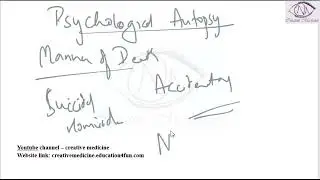 Psychological Autopsy
Manner of Death
Suicidal Accidental
Homicide
N
Youtube channel – creative medicine
Website link: creativemedicine.education4fun.com